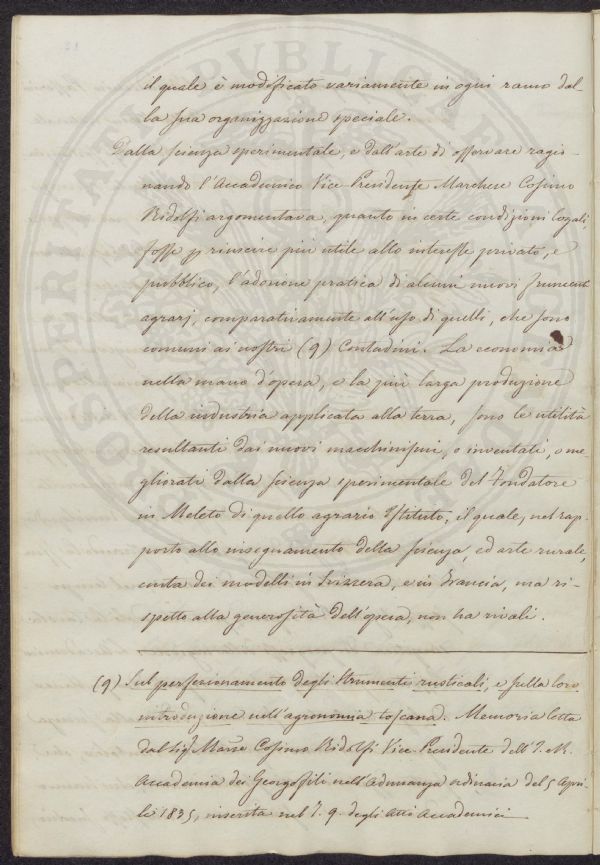 il quale è modificato variamente in ogni ramo dal
la sua organizzazione speciale.
Dalla scienza sperimentale, e dall'arte di osservare ragio-
nando l'Accademico Vice-Presidente Marchese Cosimo
Ridolfi argomentava, quanto in certe condizioni locali,
fosse p riuscire più utile allo interesse privato, e
pubblico, l'adozione pratica di alcuni nuovi strumenti
agrarj, comparativamente all'uso di quelli, che sono
comuni ai nostri (9) Contadini. La economia
nella mano d'opera, e la più larga produzione
della industria applicata alla terra, sono le utilità
resultanti dai nuovi macchinismi, o inventati, o me-
gliorati dalla scienza sperimentale del Fondatore
in Meleto di quello agrario Istituto, il quale, nel rap-
porto allo insegnamento della scienza, ed arte rurale,
conta dei modelli in Svizzera, e in Francia, ma ri-
spetto alla generosità dell'opera, non ha rivali.
(9) Sul perfezionamento degli Strumenti rusticali, e sulla loro
introduzione nell'agronomia toscana. Memoria letta
dal Sig. Marse Cosimo Ridolfi Vice-Presidente dell'I. e R.
Accademia dei Georgofili nell'Adunanza ordinaria del 5 Apri-
le 1835, inserita nel T. 9. degli Atti Accademici
PROSPERITATI PUBLICAE